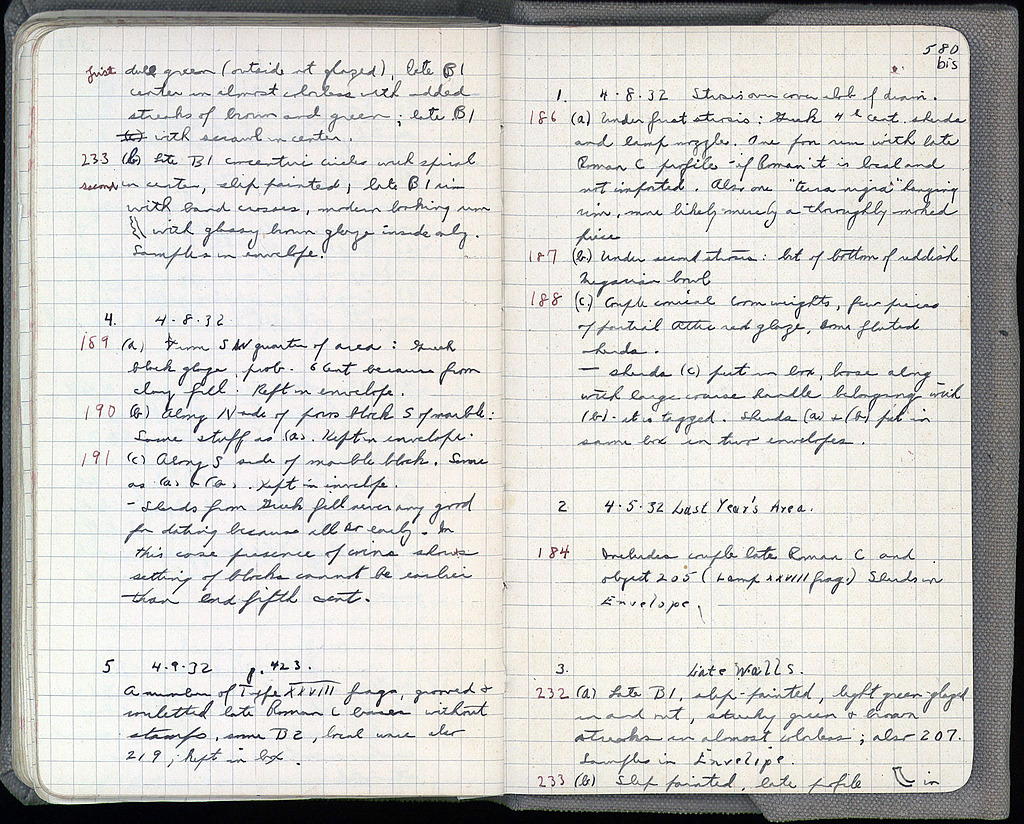 first dull green (outside not glazed), late B1
center in almost colorless with added
streaks of brown and green; late B1
with scrawl in center.
233 (b) late B1 concentric circles with spiral
second in center, slip painted; late B1 rim
with band crosses, modern looking rim
with glassy brown glaze inside only.
Samples in envelope.
4. 4.8.32
189 (a) From SW quarter of area: Greek
black glaze, prob. 6 cent because from
clay fill. Kept in envelope.
190 (b) Along N side of poros block S of marble:
Same stuff as (a). Kept in envelope.
191 (c) Along S side of marble block. Same
as (a) & (b). Kept in envelope.
- Sherds from Greek fill never any good
for dating because all so early. In
this case presence of coins shows
setting of blocks cannot be earlier
than end fifth cent.
5 4.9.32 p. 423.
A number of Type XXVIII frags, grooved &
rouletted late Roman C bases without
stamps, some B2, local ware also
219; kept in box.
580
bis
1. 4.8.32 Stosis over cover slab of drain.
186 (a) Under first stosis: Greek 4th cent. sherds
and lamp nozzle. One poor rim with late
Roman C profile - if Roman it is local and
not imported. Also one "terra nigra" hanging
rim, more likely merely a thoroughly smoked
piece
187 (b) Under second stosis: bit of bottom of reddish
Megarian bowl
188 (c) Couple conical loomweights, few pieces
of partial Attic red glaze, some fluted
sherds.
— sherds (c) put in box, loose along
with large coarse handle belonging with
(b) - it is tagged. Sherds (a) & (b) put in
same box in two envelopes.
2 4.5.32 Last Year's Area.
184 Includes couple late Roman C and
object 205 (Lamp XXVIII frag.) Sherds in
Envelope.
3. Late Walls.
232 (a) Late B1, slip-painted, light green glazed
in and out, streaky green & brown
streaks in almost colorless; also 207.
Samples in Envelipe.
233 (b) Slip painted, late profile in